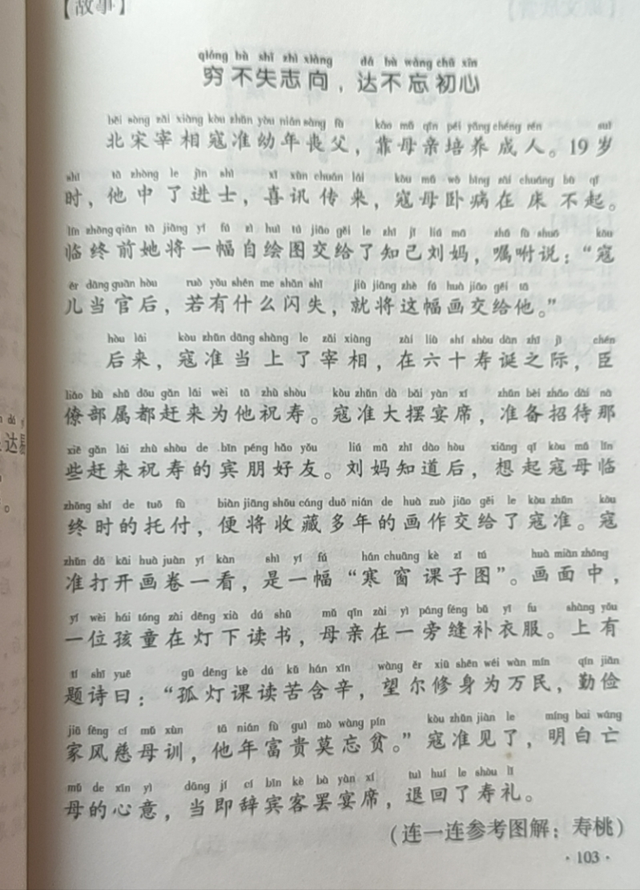 【故事】
qióng bù shī zhì xiàng dá bù wàng chū xīn
穷不失志向，达不忘初心
běi sòng zǎi xiàng kòu zhǔn yòu nián sàng fù kào mǔ qīn péi yǎng chéng rén suì
北宋宰相寇准幼年丧父，靠母亲培养成人。19岁
shí tā zhòng le jìn shì xǐ xùn chuán lái kòu mǔ wò bìng zài chuáng bù qǐ
时，他中了进士，喜讯传来，寇母卧病在床不起。
lín zhōng qián tā jiāng yì fú zì huì tú jiāo gěi le zhī jǐ liú mā zhǔ fù shuō kòu
临终前她将一幅自绘图交给了知己刘妈，嘱咐说：“寇
ér dāng guān hòu ruò yǒu shén me shǎn shī jiù jiāng zhè fú huà jiāo gěi tā
儿当官后，若有什么闪失，就将这幅画交给他。”
hòu lái kòu zhǔn dāng shàng le zǎi xiàng zài liù shí shòu dàn zhī jì chén
后来，寇准当上了宰相，在六十寿诞之际，臣
liáo bù shǔ dōu gǎn lái wèi tā zhù shòu kòu zhǔn dà bǎi yàn xí zhǔn bèi zhāo dài nà
僚部属都赶来为他祝寿。寇准大摆宴席，准备招待那
xiē gǎn lái zhù shòu de bīn péng hǎo yǒu liú mā zhī dào hòu xiǎng qǐ kòu mǔ lín
些赶来祝寿的宾朋好友。刘妈知道后，想起寇母临
zhōng shí de tuō fù biàn jiāng shōu cáng duō nián de huà zuò jiāo gěi le kòu zhǔn kòu
终时的托付，便将收藏多年的画作交给了寇准。寇
zhǔn dǎ kāi huà juàn yí kàn shì yì fú hán chuāng kè zǐ tú huà miàn zhōng
准打开画卷一看，是一幅“寒窗课子图”。画面中，
yí wèi hái tóng zài dēng xià dú shū mǔ qīn zài yì páng féng bǔ yī fu shàng yǒu
一位孩童在灯下读书，母亲在一旁缝补衣服。上有
tí shī yuē gū dēng kè dú kǔ hán xīn wàng ěr xiū shēn wèi wàn mín qín jiǎn
题诗曰：“孤灯课读苦含辛，望尔修身为万民，勤俭
jiā fēng cí mǔ xùn tā nián fù guì mò wàng pín kòu zhǔn jiàn le míng bai wáng
家风慈母训，他年富贵莫忘贫。”寇准见了，明白亡
mǔ de xīn yì dāng jí cí bīn kè bà yàn xí tuì huí le shòu lǐ
母的心意，当即辞宾客罢宴席，退回了寿礼。
（连一连参考图解：寿桃）
·103·